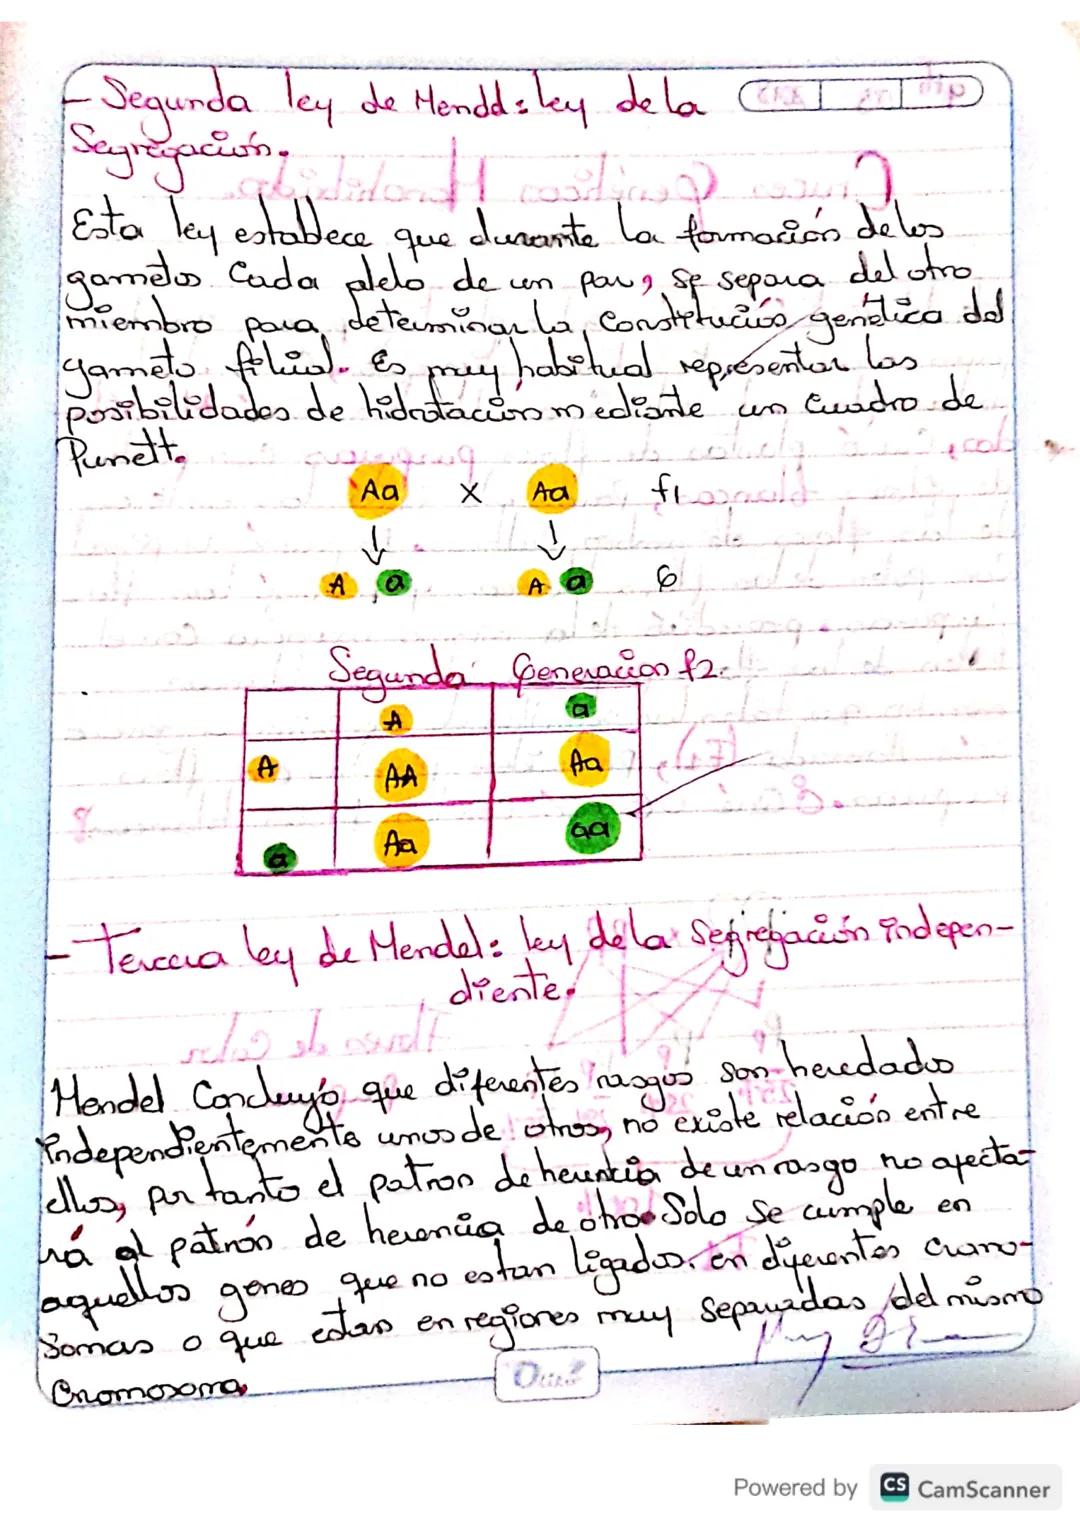 - Segunda ley de Mendel: ley de la
Segregación.
Esta ley establece que durante la formación de los
gametos Cada alelo de un par, se separa del otro
miembro para determinar la Constitución genética del
gameto filial. Es muy habitual representar las
posibilidades de hidrotación mediante un Cuadro de
Punett.
Aa x Aa f1
A a A a G
Segunda Generación f2.
A a
A AA Aa
a Aa aa
- Tercera ley de Mendel: ley de la Segregación indepen-
diente.
Mendel Concluyó que diferentes rasgos son heredados
independientemente unos de otros, no existe relación entre
ellos, por tanto el patron de herencia de un rasgo no afecta-
rá al patrón de herencia de otro. Solo se cumple en
aquellos genes que no estan ligados. en diferentes cromo-
somas o que estan en regiones muy separadas del mismo
Cromosoma.
Powered by CS CamScanner